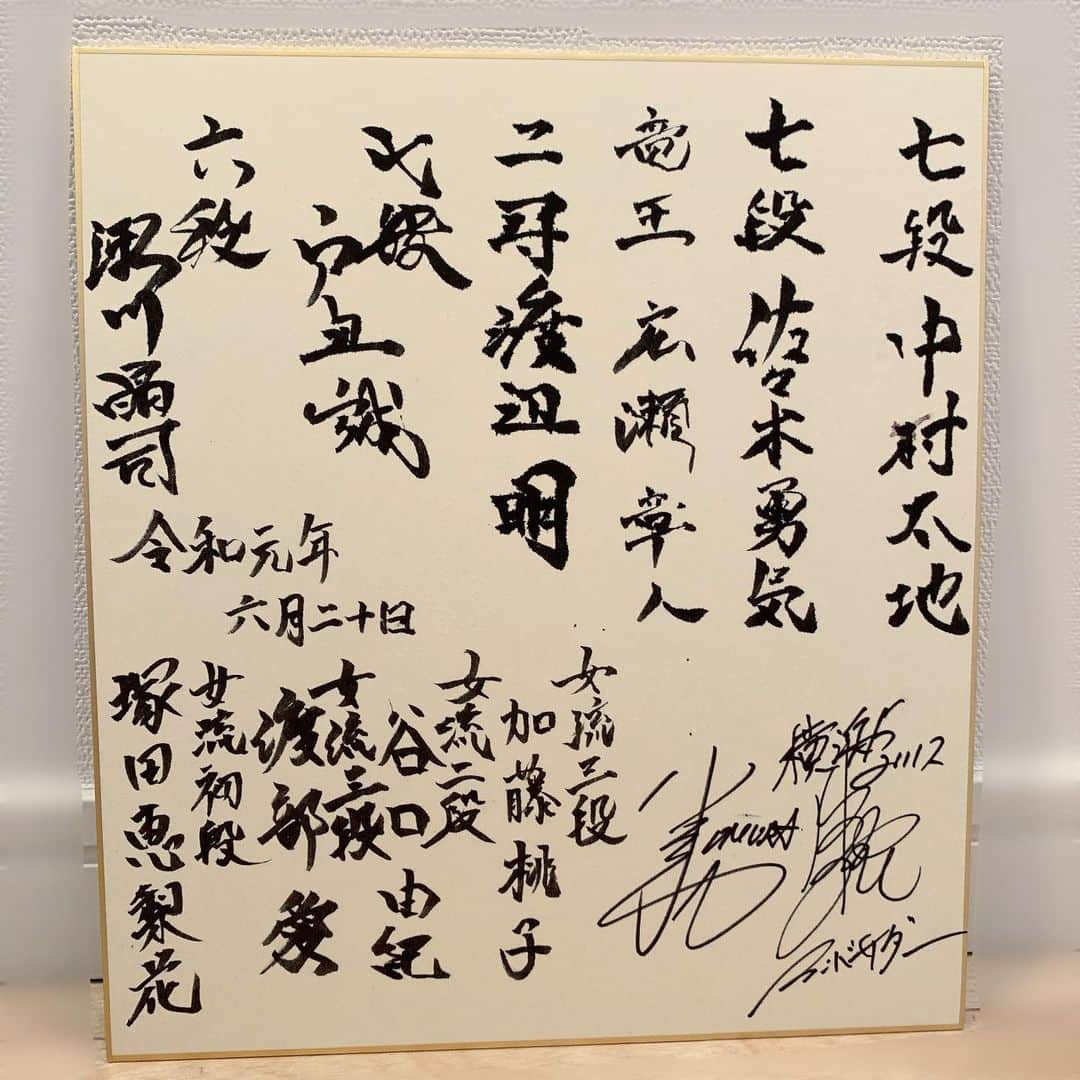 七段 中村太地
七段 佐々木勇気
竜王 広瀬章人
二冠 渡辺明
七段
戸辺誠
六段
及川拓司
令和元年
六月二十日
女流三段
加藤桃子
女流二段
谷口由紀
女流三段
渡部愛
女流初段
塚田恵梨花